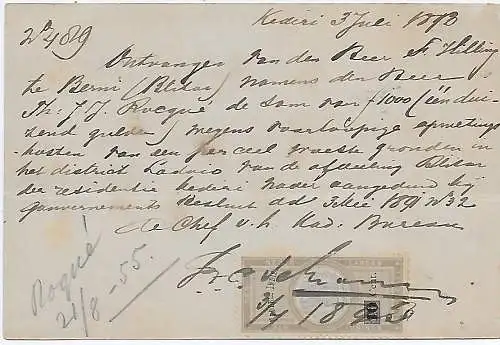 Kediri 3 Juli 1893
No 489
Ontvangen van den Heer F. Villing
te Berni (Blitar) namens den Heer
Th. J. J. Rocqué de som van f 1000 (één dui-
zend gulden) wegens voorloopige opmetings-
kosten van een perceel woeste gronden in
het district Lodoio van de afdeeling Blitar
der residentie Kediri nader aangeduid bij
gouvernements besluit dd 3 Mei 1891 No 32
de Chef v. h. Kad. Bureau
3/7 1893
10 cnt.
Roqué
21/8 - 55.